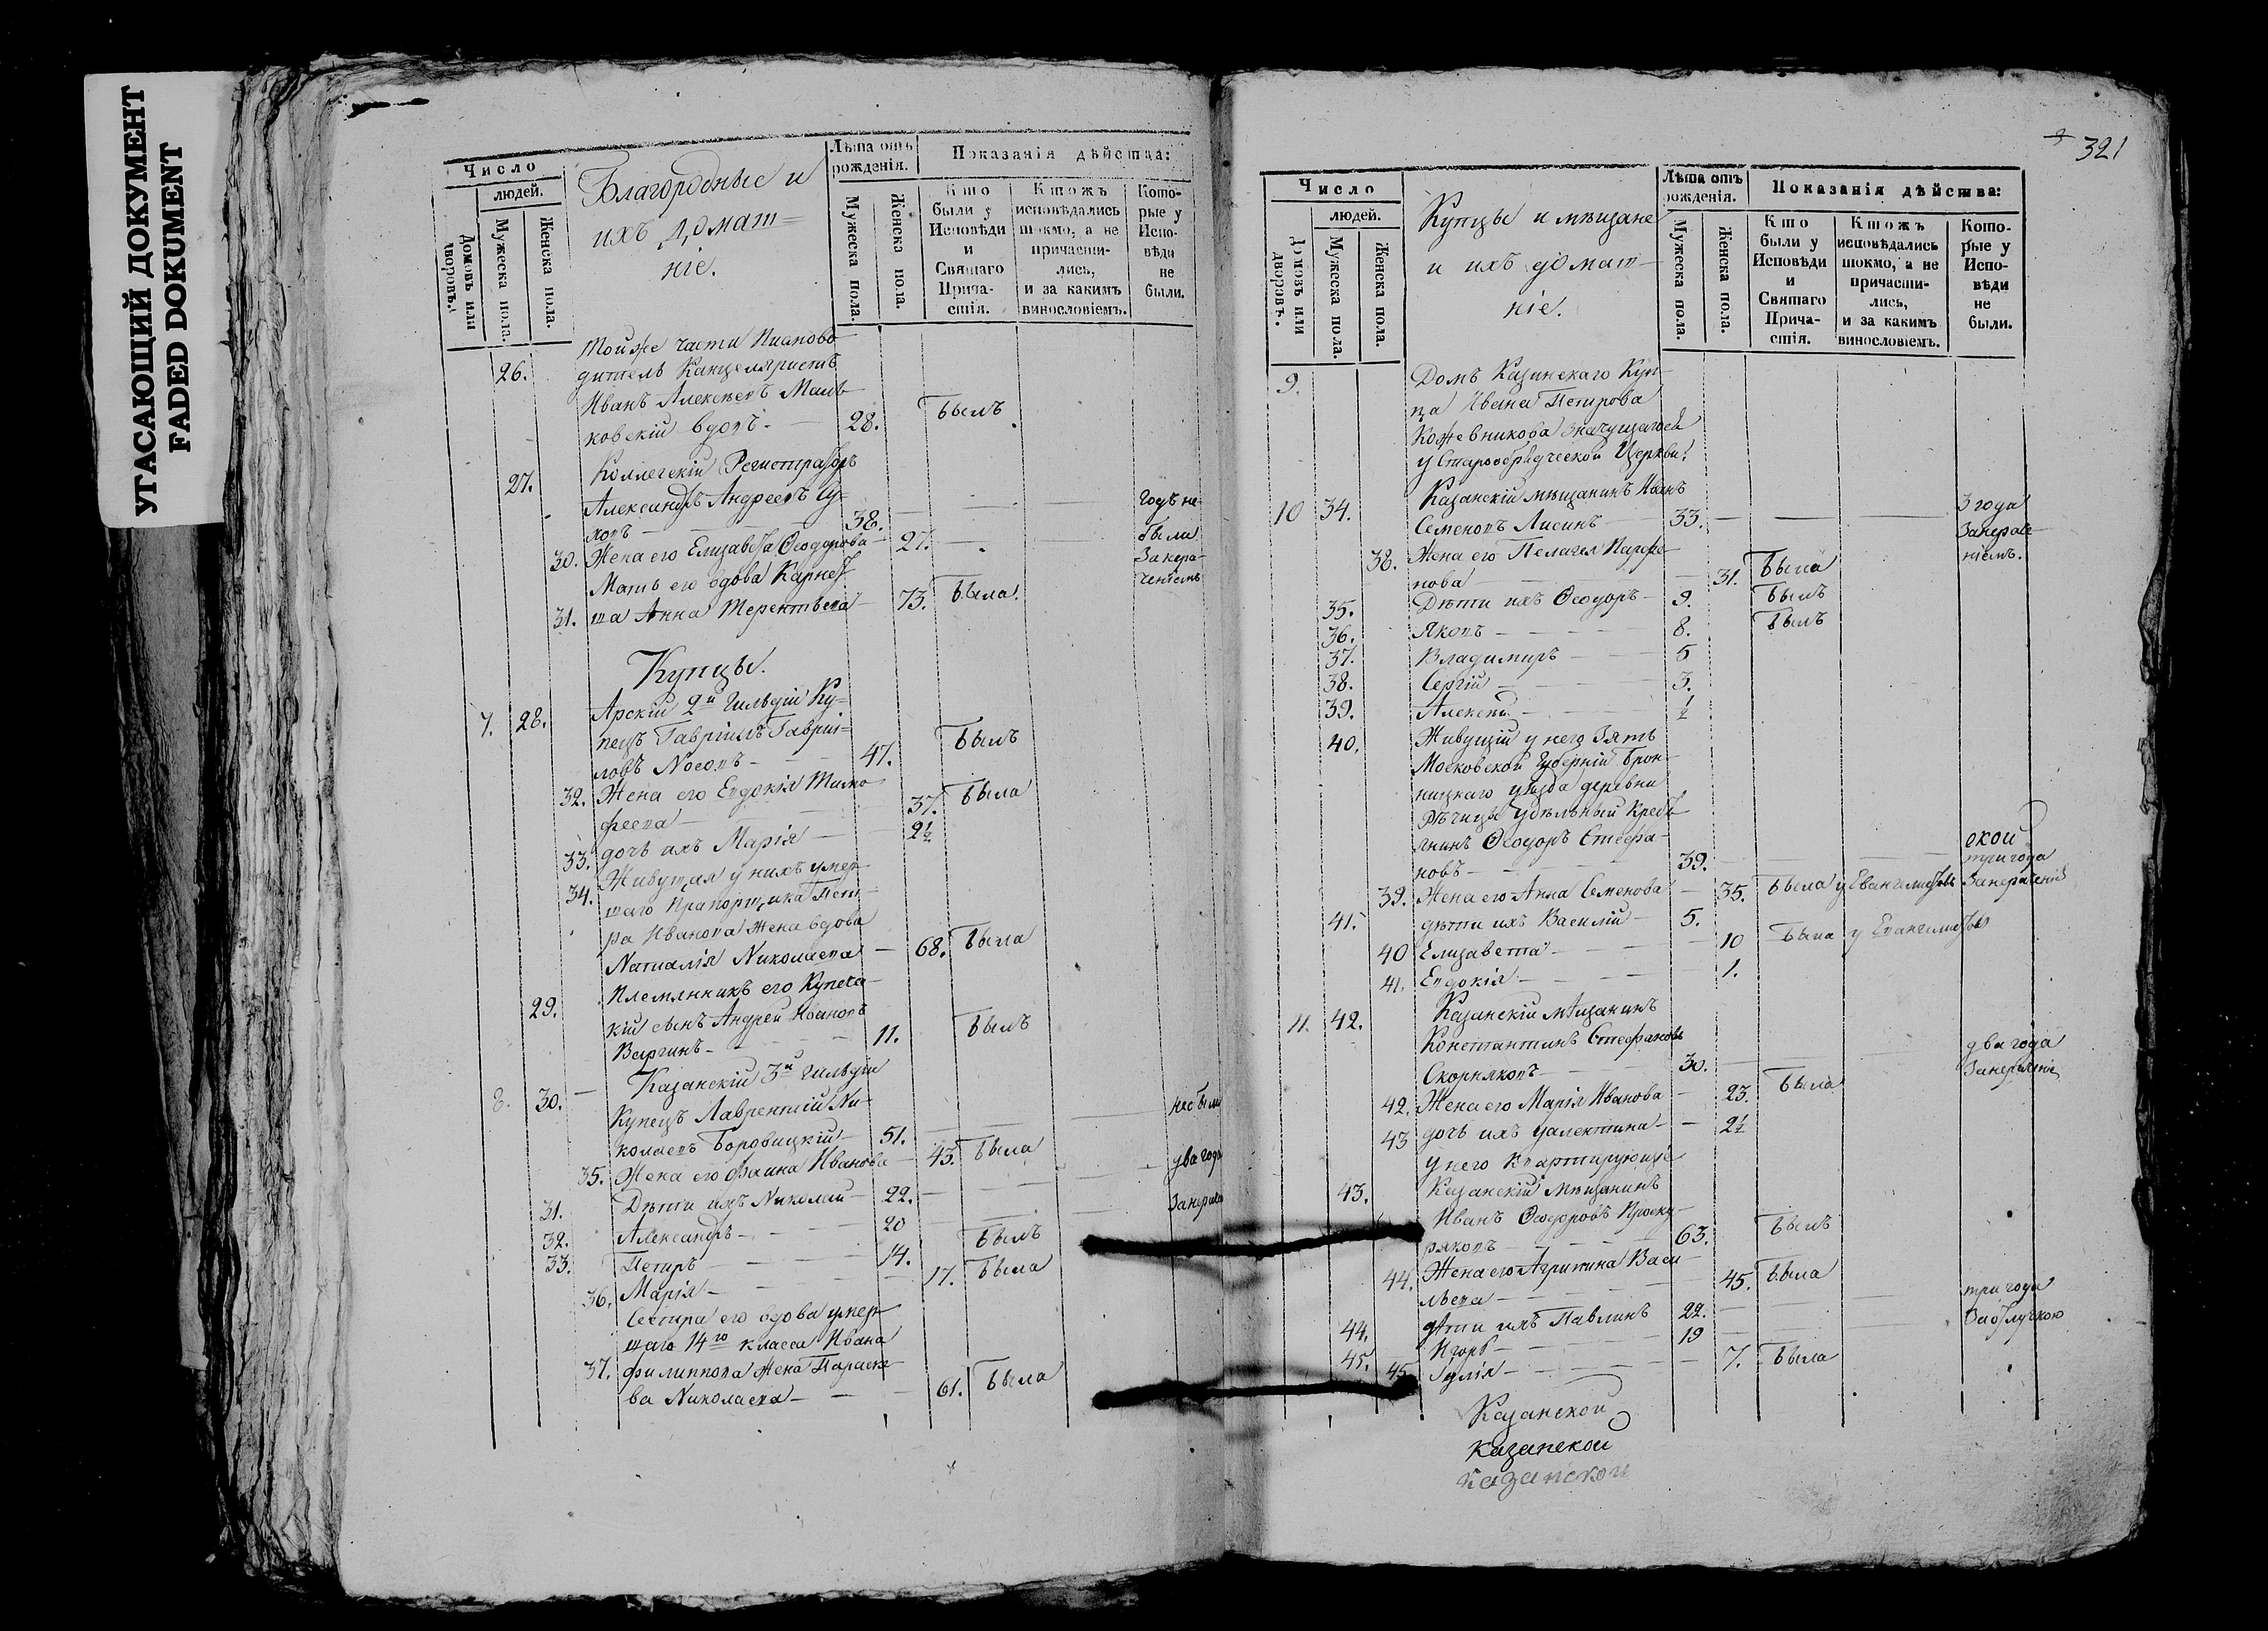 УТАСАЮЩИЙ ДОКУМЕНТ
FADED DOKUMENT
Число
людей.
Домовъ или дворовъ.
Мужеска пола.
Женска пола.
Благородные и
ихъ домаш=
ніе.
Лѣта отъ рожденія.
Мужеска пола.
Женска пола.
Показанія дѣйства:
Кто были у Исповѣди и Святаго Прича-стія.
Ктожъ исповѣдались токмо, а не причасти-лись, и за какимъ винословіемъ.
Кото-рые у Испо-вѣди не были.
26. тойже части
дитель Канцеляристъ
Иванъ Алексѣевъ Маль-
ковскій вдовъ - 28. былъ
27. Коллегскій Регистраторъ
Александръ Андреевъ 38. годъ не
30. Жена его Елизавета Ѳеодорова 27. были
Мать его вдова Карне-
31. та Анна Терентьева 73. была
Купцы.
7. 28. Арскій 2й Гильдіи Ку=
пецъ Гавріилъ Гаврі=
ловъ Носовъ - 47. былъ
32. Жена его Евдокія Тимо
феева 37. была
33. дочь ихъ Марія 2½
34. Живущая у нихъ умер-
шаго Прапорщика Пет-
ра Иванова жена вдова
Наталія Николаева - 68. была
29. Племянникъ его Купечес-
кій сынъ Андрей Ивановъ
Варгинъ - 11. былъ
8. 30. Казанскій 3й гильдіи
Купецъ Лаврентій Ни-
колаевъ Боровицкій 51. не были
35. Жена его Фаина Иванова 43. была два года
31. Дѣти ихъ Николай 22.
32. Александръ - 20
33. Петръ 14. былъ
36. Марія - 17. была
Сестра его вдова умер-
шаго 14го класса Ивана
37. Филиппова жена Параске-
ва Николаева - 61. была
321
Число
людей.
Домовъ или дворовъ.
Мужеска пола.
Женска пола.
Купцы и мѣщане
и ихъ домаш-
ніе.
Лѣта отъ рожденія.
Мужеска пола.
Женска пола.
Показанія дѣйства:
Кто были у Исповѣди и Святаго Прича-стія.
Ктожъ исповѣдались токмо, а не причасти-лись, и за какимъ винословіемъ.
Кото-рые у Испо-вѣди не были.
9. Домъ Казанскаго Куп-
ца Ивана Петрова
Кожевникова значущагося
у Старообрядческой Церкви.
10 34. Казанскій мѣщанинъ Иванъ
Семеновъ Лисинъ 33. 3 года
38. Жена его Пелагея Парфе-
нова 31. была
35. Дѣти ихъ Ѳеодоръ - 9. былъ
36. Яковъ - 8. былъ
37. Владимиръ - 5
38. Сергій 3.
39. Алексѣй ½
40. Живущій у него Зять
Московской Губерніи Брон-
ницкаго уѣзда деревни
Рѣчицы Удѣльный Кресть-
янинъ Ѳеодоръ Стефа-
новъ - 39. три года
39. Жена его Анна Семенова 35. была у Евангелистовъ
41. дѣти ихъ Василій - 5.
40 Елизавета - 10 была у Евангелистовъ
41. Евдокія - 1.
11. 42. Казанскій мѣщанинъ
Константинъ Стефановъ
Скорняковъ - 30. два года
42. Жена его Марія Иванова - 23. была
43 дочь ихъ Валентина - 2½
у него квартирующіе
43. Казанскій мѣщанинъ
Иванъ Ѳеодоровъ Проску-
ряковъ 63. былъ
44. Жена его Агрипина Васи
льева 45. была
44. дѣти ихъ Павлинъ 22. три года
45. Игорь - 19 За отлучкою
45 Іулія - 7. была
Казанской
казанской
казанской